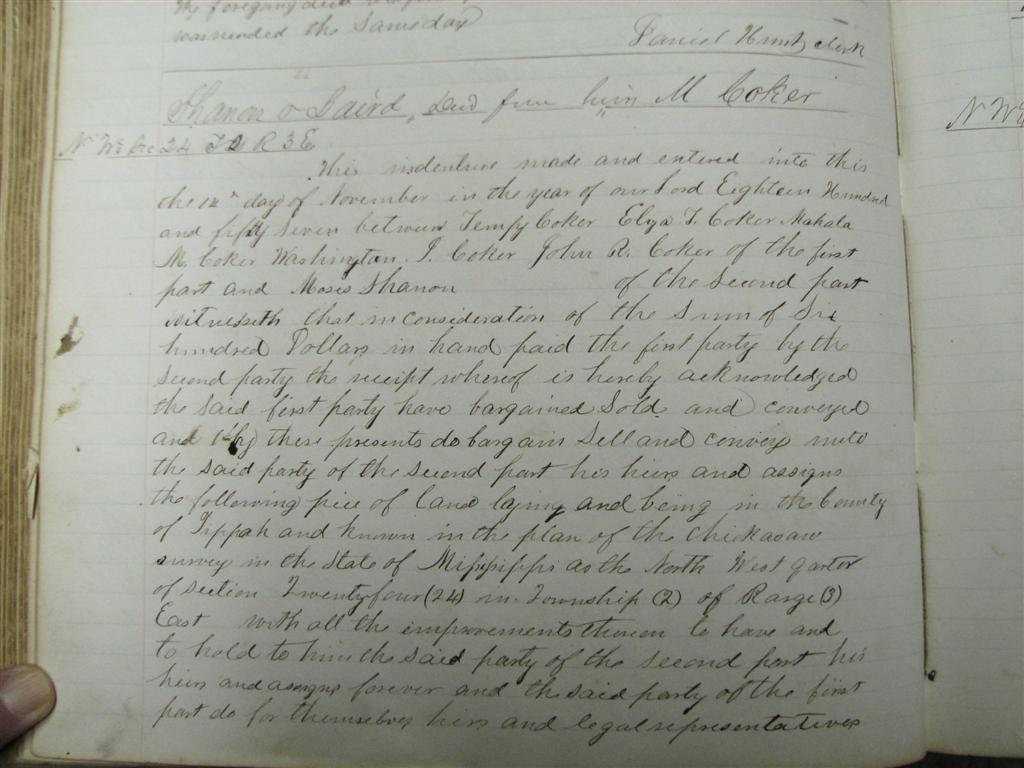 the foregoing deed
was recorded the Same day
Daniel Hunt, clerk
Shanon & Laird, Deed from heirs M Coker
N W¼ Sec 24 T2 R 3E
This indenture made and entered into this
the day of November in the year of our Lord Eighteen Hundred
and fifty Seven between Tempy Coker Eliza T. Coker Mahala
M. Coker Washington. I. Coker John R. Coker of the first
part and Moses Shanon of the Second part
witnesseth that in consideration of the Sum of Six
hundred Dollars in hand paid the first party by the
Second party the receipt whereof is hereby acknowledged
the Said first party have bargained Sold and conveyed
and by these presents do bargain Sell and convey unto
the Said party of the Second part his heirs and assigns
the following piece of land laying and being in the County
of Tippah and known in the plan of the Chickasaw
survey in the State of Mississippi as the North West quarter
of section Twenty four (24) in Township (2) of Range (3)
East with all the improvements thereon to have and
to hold to him the Said party of the Second part his
heirs and assigns forever and the said party of the first
part do for themselves heirs and legal representatives